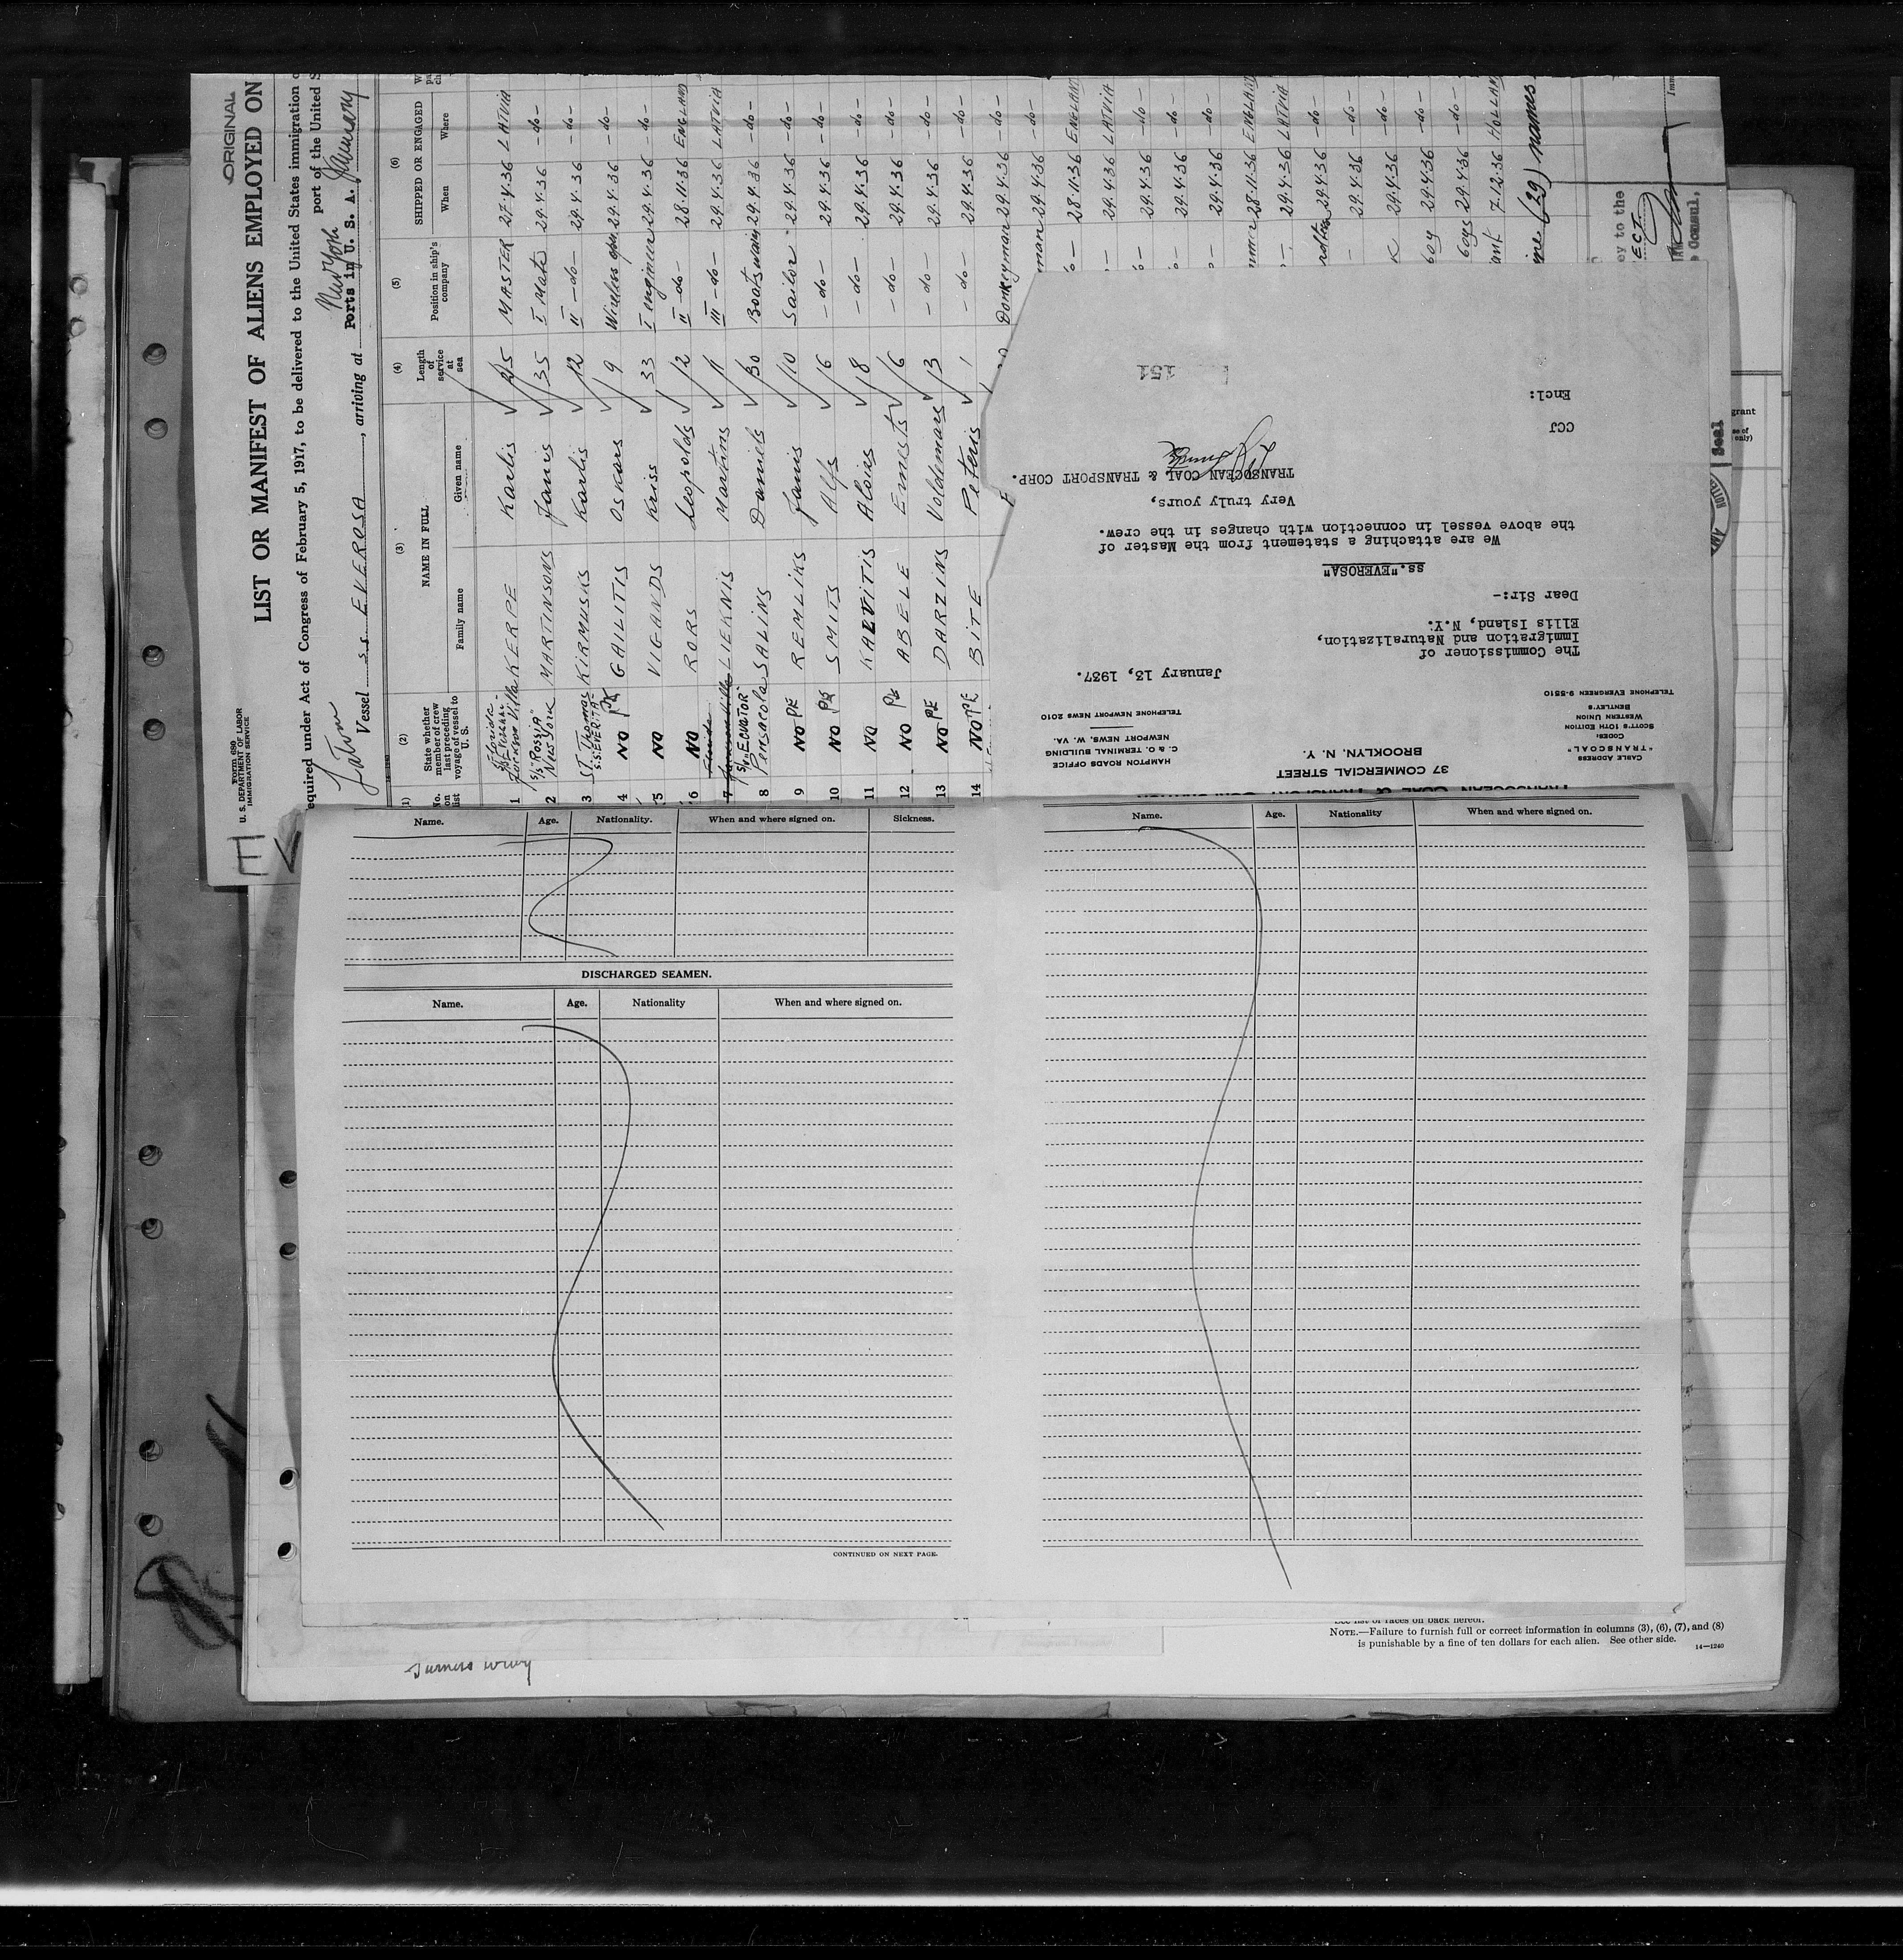 ORIGINAL
Form 680
U. S. DEPARTMENT OF LABOR
IMMIGRATION SERVICE
LIST OR MANIFEST OF ALIENS EMPLOYED ON
equired under Act of Congress of February 5, 1917, to be delivered to the United States immigration
port of the United S
Vessel s.s. EVEROSA, arriving at New York
Ports in U. S. A.
(1) (2) (3) (4) (5) (6)
No. on list
State whether member of crew last preceding voyage of vessel to U. S.
NAME IN FULL
Family name Given name
Length of service at sea
Position in ship's company
SHIPPED OR ENGAGED
When Where
1 Florida KERPE Karlis 25 MASTER 27.4.36 LATVIA
2 S/S "Rossia" New York MARTINSONS Janis 35 I Mate 29.4.36 -do-
3 ST. Thomas S.S. EVERITA KIRMUSKS Karlis 12 II -do- 29.4.36 -do-
4 NO GAILITIS Oskars 9 Wireless 29.4.36 -do-
5 NO VIGANDS Kriss 33 I engineer 29.4.36 -do-
6 NO RORS Leopolds 12 II -do- 28.11.36 ENGLAND
7 LIEKNIS Martins 11 III -do- 29.4.36 LATVIA
8 S/S "EQUATOR" Pensacola SALINS Daniels 30 Boatswain 29.4.36 -do-
9 NO PE REMLIKS Janis 10 Sailor 29.4.36 -do-
10 NO SMITS Alfs 16 -do- 29.4.36 -do-
11 NO KALVITIS Aloiss 18 -do- 29.4.36 -do-
12 NO ABELE Ernests 6 -do- 29.4.36 -do-
13 NO PE DARZINS Voldemars 13 -do- 29.4.36 -do-
14 NO PE BITE Peteris 1 -do- 29.4.36 -do-
Donkeyman 29.4.36 -do-
man 29.4.36 -do-
28.11.36 ENGLAND
29.4.36 LATVIA
29.4.36 -do-
29.4.36 -do-
29.4.36 -do-
28.11.36 ENGLAND
29.4.36 LATVIA
29.4.36 -do-
29.4.36 -do-
29.4.36 -do-
boy 29.4.36 -do-
boys 29.4.36 -do-
7.12.36 HOLLAND
(29) names
ey to the
ECT
Consul.
37 COMMERCIAL STREET
BROOKLYN, N. Y.
CABLE ADDRESS
"TRANSCOAL"
CODES:
SCOTT'S 10TH EDITION
WESTERN UNION
BENTLEY'S
TELEPHONE EVERGREEN 9-5510
HAMPTON ROADS OFFICE
C. & O. TERMINAL BUILDING
NEWPORT NEWS, W. VA.
TELEPHONE NEWPORT NEWS 2010
January 13, 1937.
The Commissioner of
Immigration and Naturalization,
Ellis Island, N.Y.
Dear Sir:-
ss."EVEROSA"
We are attaching a statement from the Master of
the above vessel in connection with changes in the crew.
Very truly yours,
TRANSOCEAN COAL & TRANSPORT CORP.
CCJ
Encl:
151
Seal
Name. Age. Nationality. When and where signed on. Sickness.
DISCHARGED SEAMEN.
Name. Age. Nationality When and where signed on.
CONTINUED ON NEXT PAGE.
Name. Age. Nationality When and where signed on.
See list of races on back hereof.
NOTE.—Failure to furnish full or correct information in columns (3), (6), (7), and (8)
is punishable by a fine of ten dollars for each alien. See other side.
14—1240